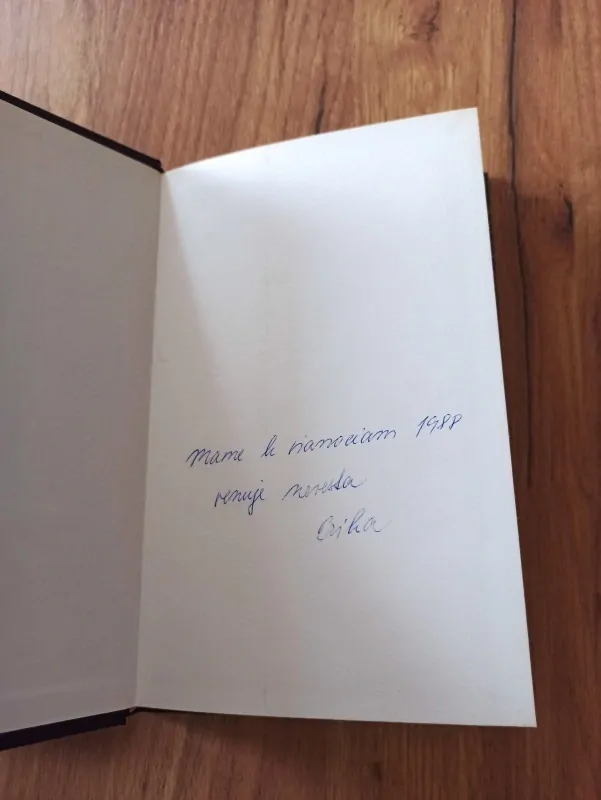 Mame k vianociam 1988
venuje nevesta
Erika